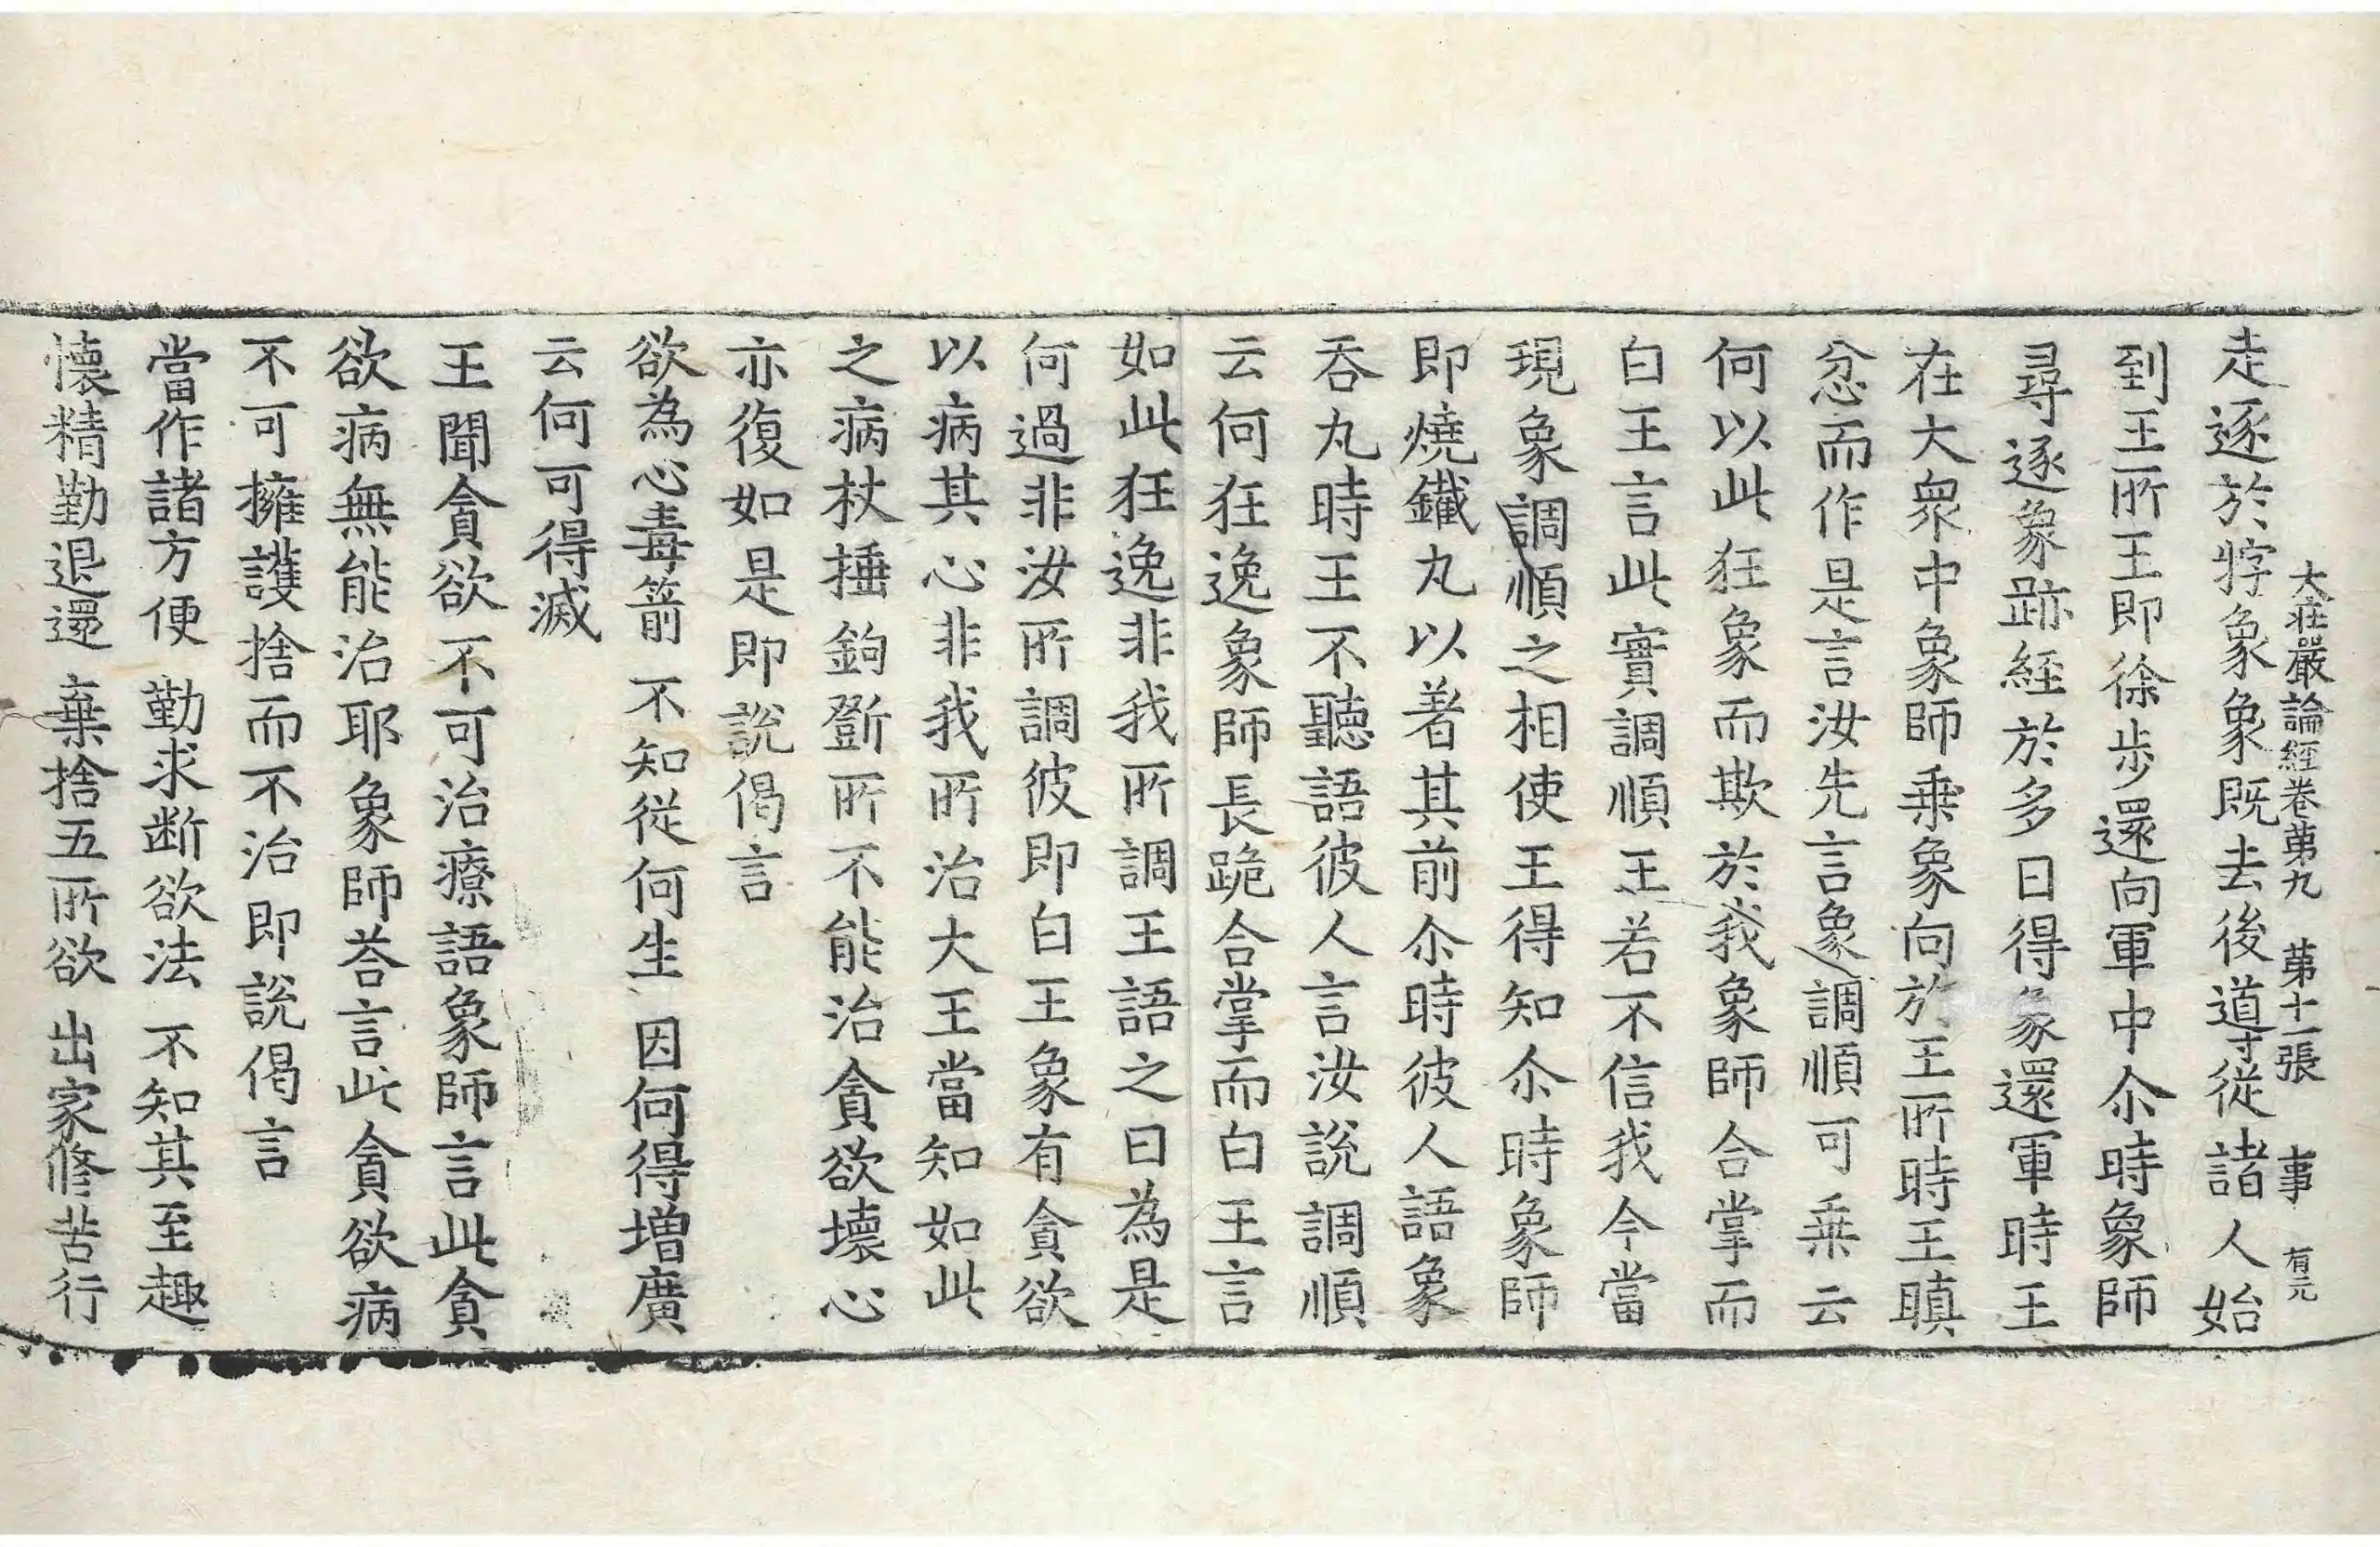 大莊嚴論經卷第九 第十一張 事 有元
走逐於牸象象既去後導從諸人始
到王所王即徐步還向軍中尒時象師
尋逐象跡經於多日得象還軍時王
在大衆中象師乗象向於王所時王瞋
忿而作是言汝先言象調順可乗云
何以此狂象而欺於我象師合掌而
白王言此實調順王若不信我今當
現象調順之相使王得知尒時象師
即燒鐵丸以著其前尒時彼人語象
吞丸時王不聽語彼人言汝説調順
云何狂逸象師長跪合掌而白王言
如此狂逸非我所調王語之曰為是
何過非汝所調彼即白王象有貪欲
以病其心非我所治大王當知如此
之病杖捶鉤斲所不能治貪欲壞心
亦復如是即説偈言
欲為心毒箭 不知從何生 因何得増廣
云何可得滅
王聞貪欲不可治療語象師言此貪
欲病無能治耶象師荅言此貪欲病
不可擁護捨而不治即説偈言
當作諸方便 勤求断欲法 不知其至趣
懐精勤退還 棄捨五所欲 出家修苦行